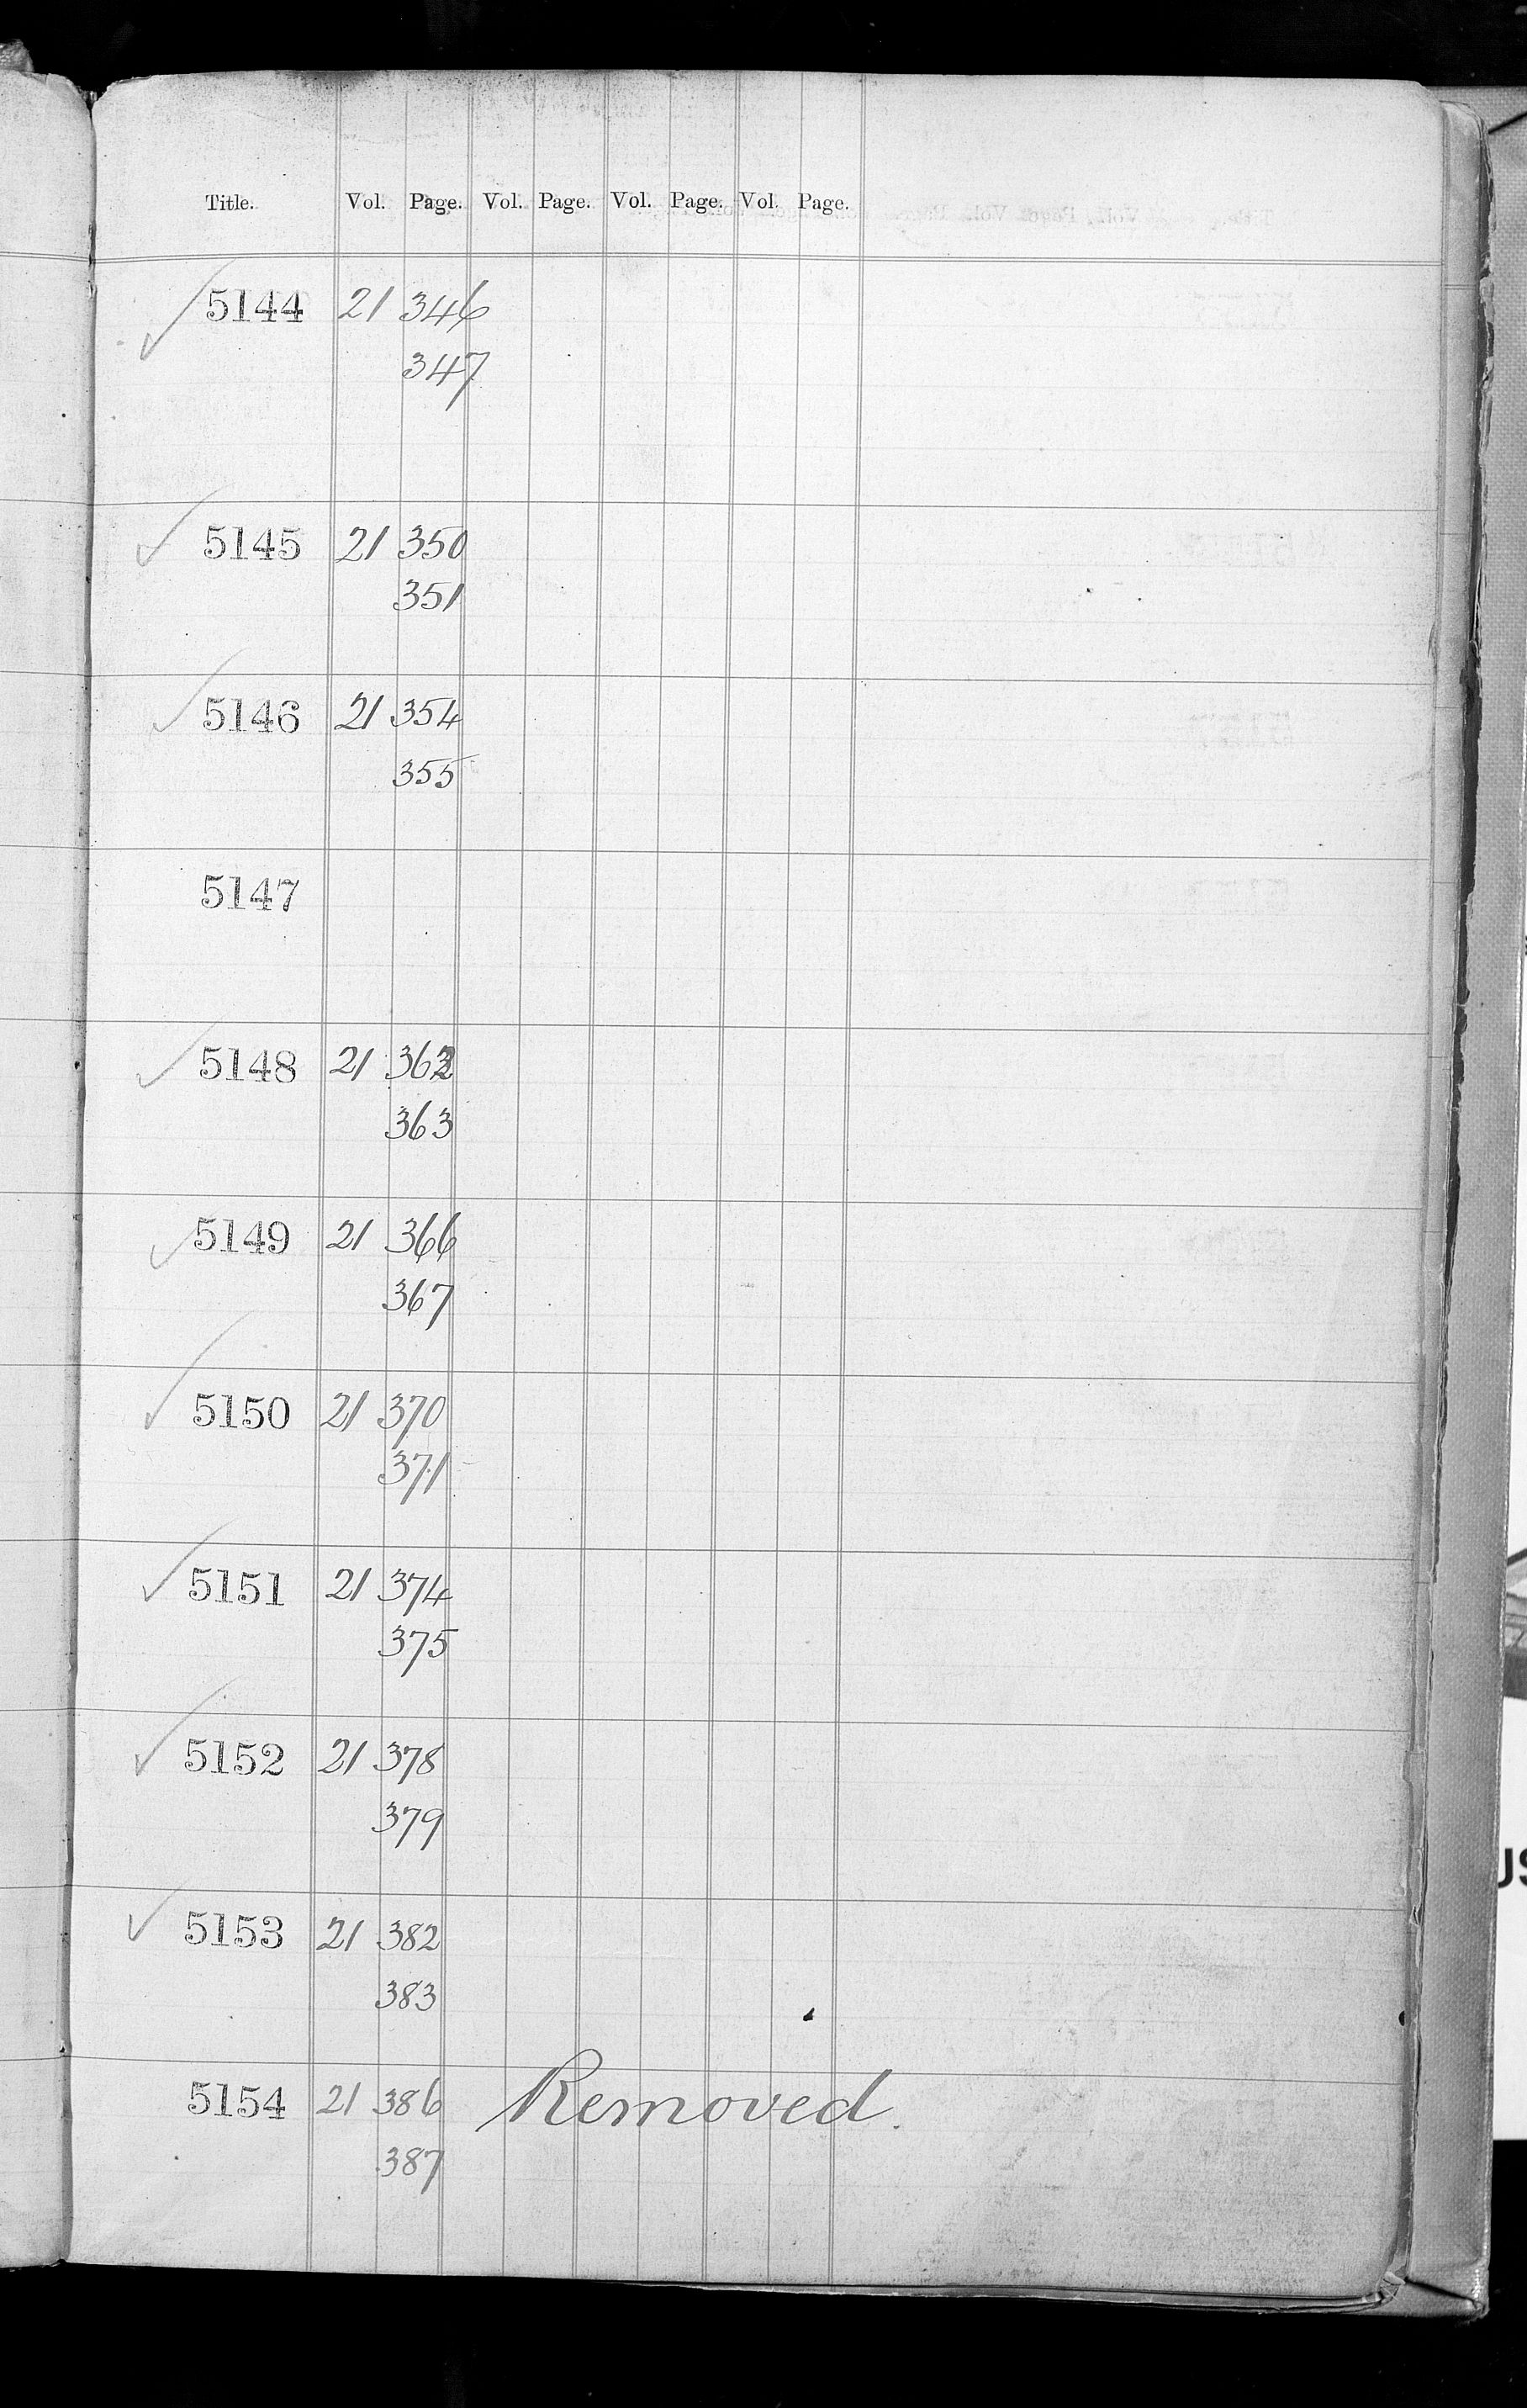 Title. Vol. Page. Vol. Page. Vol. Page. Vol. Page.
5144 21 346
347
5145 21 350
351
5146 21 354
355
5147
5148 21 362
363
5149 21 366
367
5150 21 370
371
5151 21 374
375
5152 21 378
379
5153 21 382
383
5154 21 386 Removed.
387